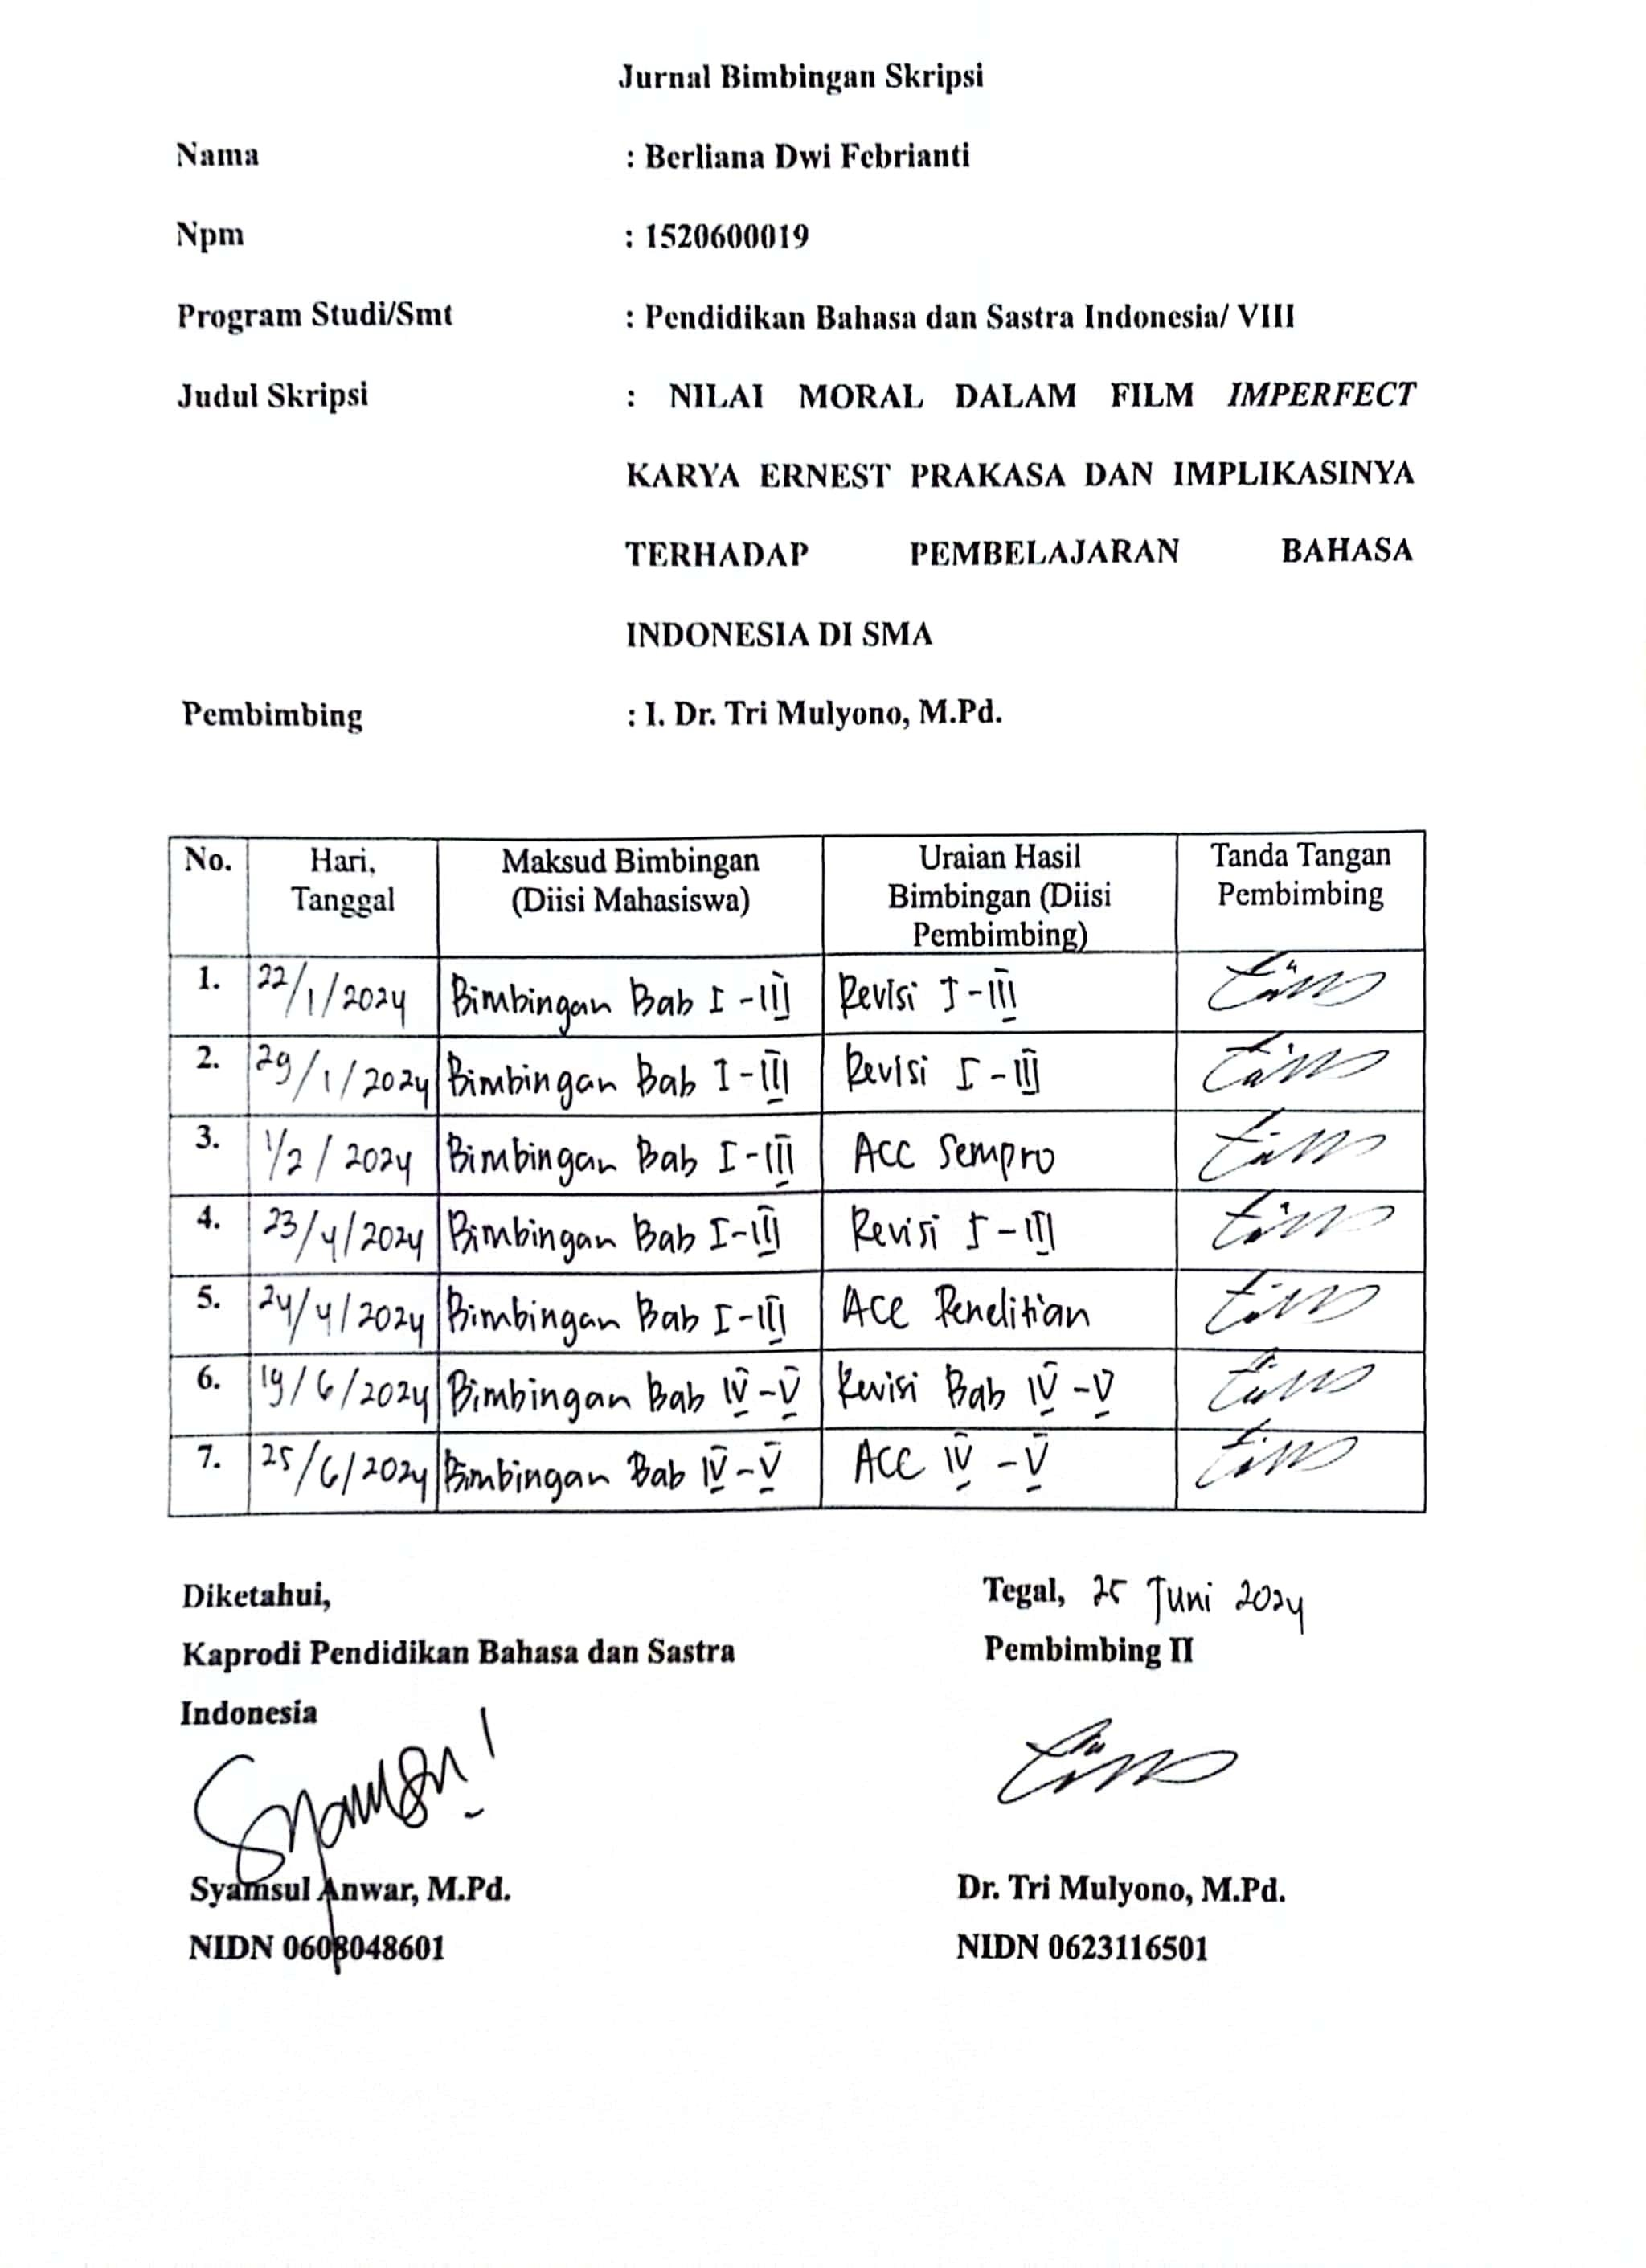 Jurnal Bimbingan Skripsi
Nama : Berliana Dwi Febrianti
Npm : 1520600019
Program Studi/Smt : Pendidikan Bahasa dan Sastra Indonesia/ VIII
Judul Skripsi : NILAI MORAL DALAM FILM IMPERFECT
KARYA ERNEST PRAKASA DAN IMPLIKASINYA
TERHADAP PEMBELAJARAN BAHASA
INDONESIA DI SMA
Pembimbing : I. Dr. Tri Mulyono, M.Pd.
No. Hari, Tanggal Maksud Bimbingan (Diisi Mahasiswa) Uraian Hasil Bimbingan (Diisi Pembimbing) Tanda Tangan Pembimbing
1. 22/1/2024 Bimbingan Bab I-III Revisi I-III
2. 29/1/2024 Bimbingan Bab I-III Revisi I-III
3. 1/2/2024 Bimbingan Bab I-III Acc Sempro
4. 23/4/2024 Bimbingan Bab I-III Revisi I-III
5. 24/4/2024 Bimbingan Bab I-III Acc Penelitian
6. 19/6/2024 Bimbingan Bab IV-V Revisi Bab IV-V
7. 25/6/2024 Bimbingan Bab IV-V Acc IV-V
Diketahui,
Kaprodi Pendidikan Bahasa dan Sastra
Indonesia
Syamsul Anwar, M.Pd.
NIDN 0608048601
Tegal, 25 Juni 2024
Pembimbing II
Dr. Tri Mulyono, M.Pd.
NIDN 0623116501